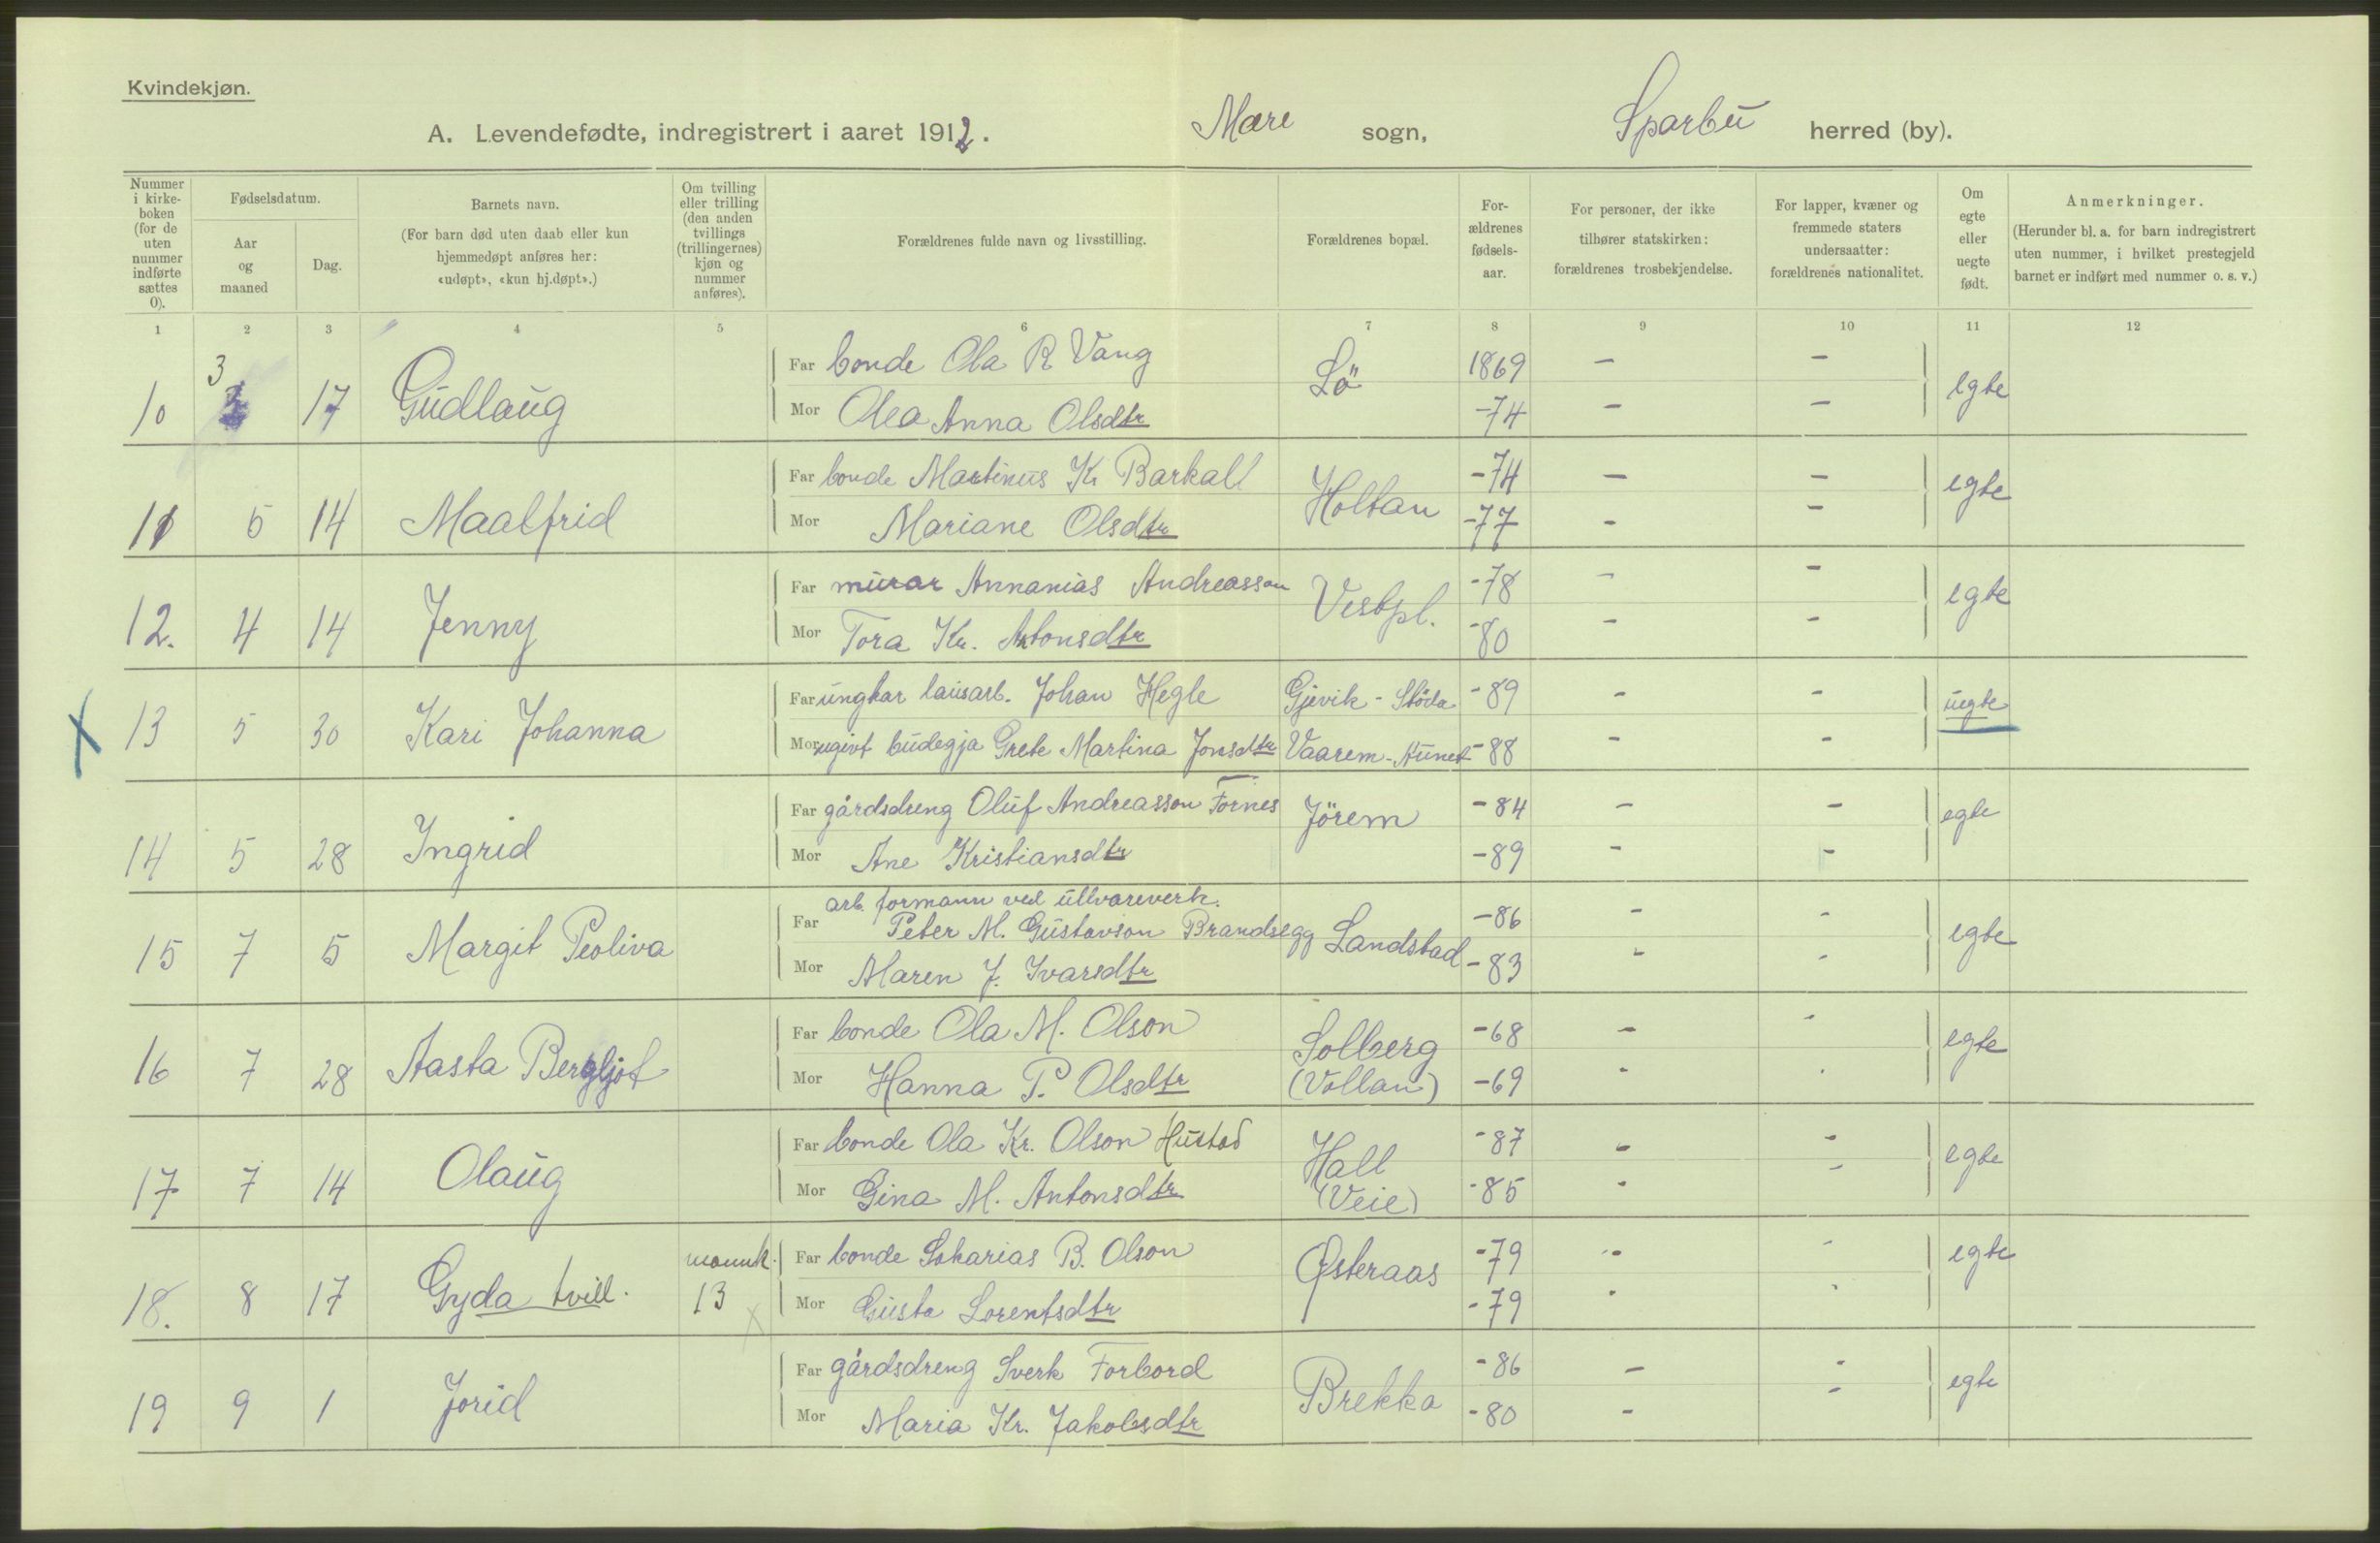 Kvindekjøn.
A. Levendefødte, indregistrert i aaret 1912. Mære sogn, Sparbu herred (by).
Nummer i kirke-boken (for de uten nummer indførte sættes 0).
Fødselsdatum.
Aar og maaned
Dag.
Barnets navn.
(For barn død uten daab eller kun hjemmedøpt anføres her: «udøpt», «kun hj.døpt».)
Om tvilling eller trilling (den anden tvillings (trillingernes) kjøn og nummer anføres).
Forældrenes fulde navn og livsstilling.
Forældrenes bopæl.
For-ældrenes fødsels-aar.
For personer, der ikke tilhører statskirken: forældrenes trosbekjendelse.
For lapper, kvæner og fremmede staters undersaatter: forældrenes nationalitet.
Om egte eller uegte født.
Anmerkninger.
(Herunder bl. a. for barn indregistrert uten nummer, i hvilket prestegjeld barnet er indført med nummer o. s. v.)
1 2 3 4 5 6 7 8 9 10 11 12
10 3 17 Gudlaug Far bonde Ola R Vang Lö 1869 - - egte
Mor Olea Anna Olsdtr -74 - -
11 5 14 Maalfrid Far bonde Martinus K. Barkall Holtan -74 - - egte
Mor Mariane Olsdtr -77 - -
12. 4 14 Jenny Far murar Annanias Andreasson Vestpl. -78 - - egte
Mor Tora Kr. Antonsdtr -80 - -
X 13 5 30 Kari Johanna Far ungkar lausarb. Johan Hegle Gjevik - Stöda -89 - - uegte
Mor ugivt budegja Grete Martina Jonsdtr Vaarem - Aunet -88 - -
14 5 28 Ingrid Far gårdsdreng Oluf Andreasson Fornes Jörem -84 - - egte
Mor Ane Kristiansdtr -89 - -
15 7 5 Margit Peoliva arb. formann ved ullvareverk.
Far Peter M. Gustavson Brandsegg Landstad -86 - - egte
Mor Maren J. Ivarsdtr -83 - -
16 7 28 Aasta Bergljot Far bonde Ola M. Olson Solberg -68 - - egte
Mor Hanna P. Olsdtr (Vollan) -69 - -
17 7 14 Olaug Far bonde Ola Kr. Olson Hustad Hall -87 - - egte
Mor Gina M. Antonsdtr (Veie) -85 - -
18. 8 17 Gyda tvill. mannk. 13 Far bonde Sakarias B. Olson Østeraas -79 - - egte
Mor Gusta Lorentsdtr -79 - -
19 9 1 Jorid Far gårdsdreng Sverk Forbord Brekka -86 - - egte
Mor Maria Kr. Jakobsdtr -80 - -